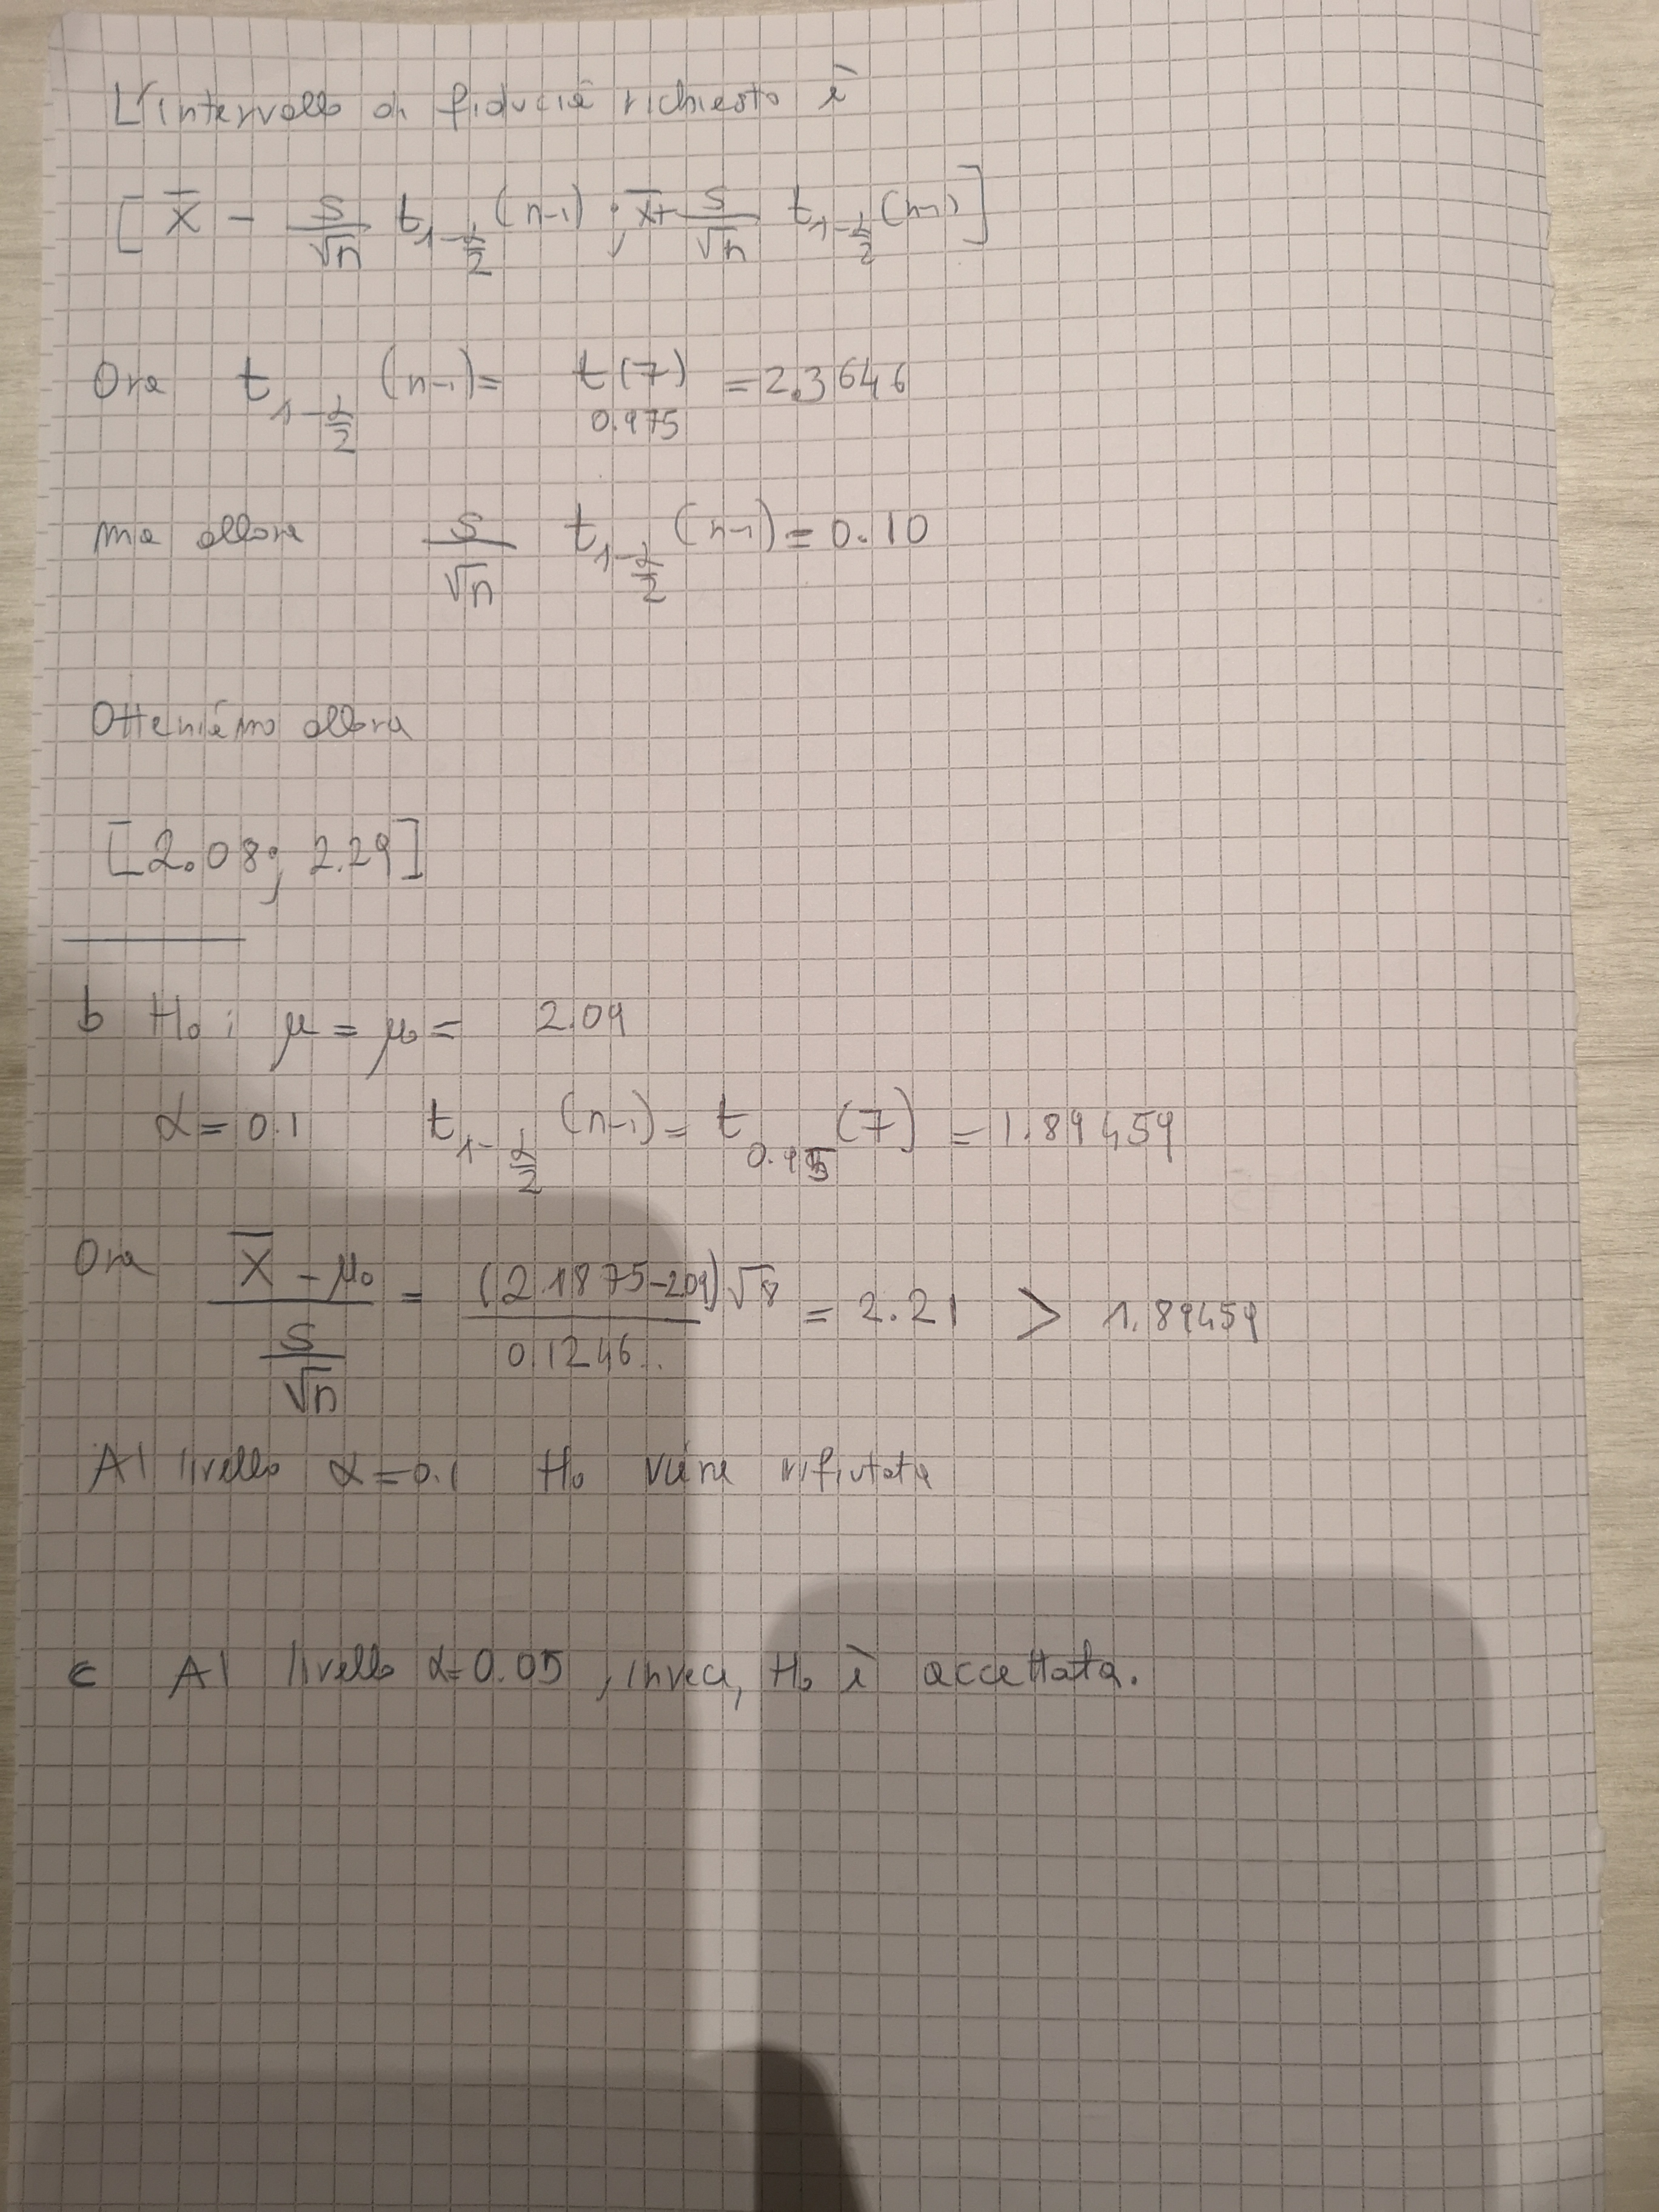 L'intervallo di fiducia richiesto è
[ X̄ - S/√n t_{1-α/2} (n-1) ; X̄ + S/√n t_{1-α/2} (n-1) ]
Ora t_{1-α/2} (n-1) = t_{0.975} (7) = 2.3646
ma allora S/√n t_{1-α/2} (n-1) = 0.10
Otteniamo allora
[2.08; 2.29]
b H₀ : μ = μ₀ = 2.09
α = 0.1 t_{1-α/2} (n-1) = t_{0.95} (7) = 1.89459
Ora (X̄ - μ₀)/(S/√n) = ((2.1875-2.09)√8)/0.1246.. = 2.21 > 1.89459
Al livello α=0.1 H₀ viene rifiutata
c Al livello α=0.05, invece, H₀ è accettata.